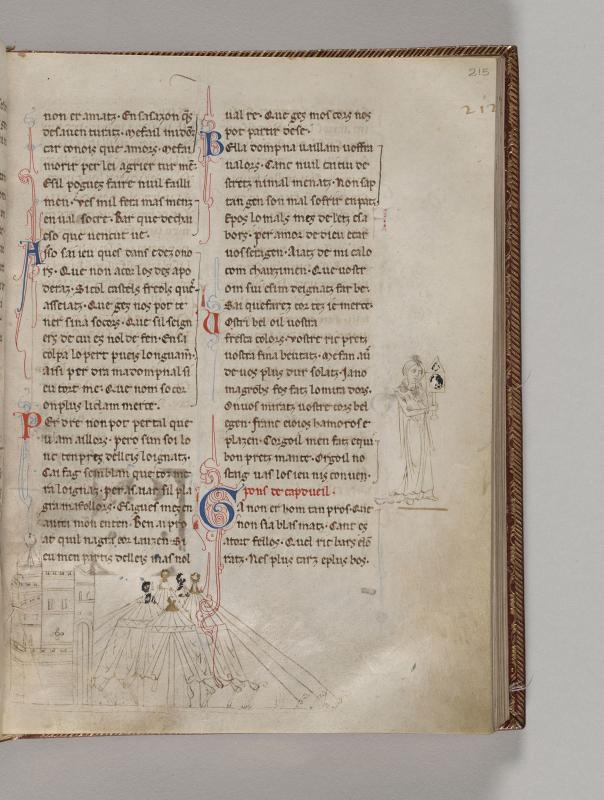 215
212
non er amatz. En sa sazon qes
desauen turatz. Mefail mi dōz
car conois que amors. Mefai
morir per lei agrier tur me.
Esil pogues faire nuil failli
men. ves mil feta mas menz
en ual socre. Bar que dechai
eso que uencut ue.
Asso sai ieu ques dans e dezono
rs. Que non acor los des apo
deratz. Si col castels freols que
asseiatz. Que ges nos pot te
ner sina socors. Que sil seign
ers de cui es nol de fen. En si
colpa lo pert pueis longuam.
Aisi per dra ma dompnal si
eu tort me. Que nom socor
on plus li clam merce.
Per dre non pot per tal que
uam aillors. pero sun soi lo
nc ten pres delleis loignatz.
Cai fag semblan que tor me
ra loignaz. per asaiar sil pla
gramafollors. Esaques mez en
autra mon enten. Ben ai pro
at quil nagra cor iauzen. Si
eu men partis delleis mas nol
ual re. Que ges mos cors nos
pot partir de se.
Bella dompna uaillam uostra
ualors. Canc nuil en tui de
stretz ni mal menatz. Non sap
tan gen son mal sofrir en patz.
Epos lo mals mez deletz esa
bors. per amor de dieu ecar
uos serigen. Aiatz de mi calo
com chauzimen. Que vostr
om sui esim deignatz far be.
Sai que farez cor tez ie merce.
Uostri bel oil uostra
fresca colors. vostre ric pretz
uostra fina beutatz. Mefan aū
de uos plus dur solatz. Ja no
magrobs fos fatz lo mira dors.
On uos miratz uostre cors bel
egen. franc eioios hamoros e
plazen. Corgoil men fatz equi
bon pretz mante. Orgoil no
staig uas los ieu nis conuen.
Gpons de capdueil.
Ga non er hom tan pros. Que
non sia blasmatz. Cant es
atort fellos. Quel ric bars elō
ratz. Nes plus carz eplus bos.